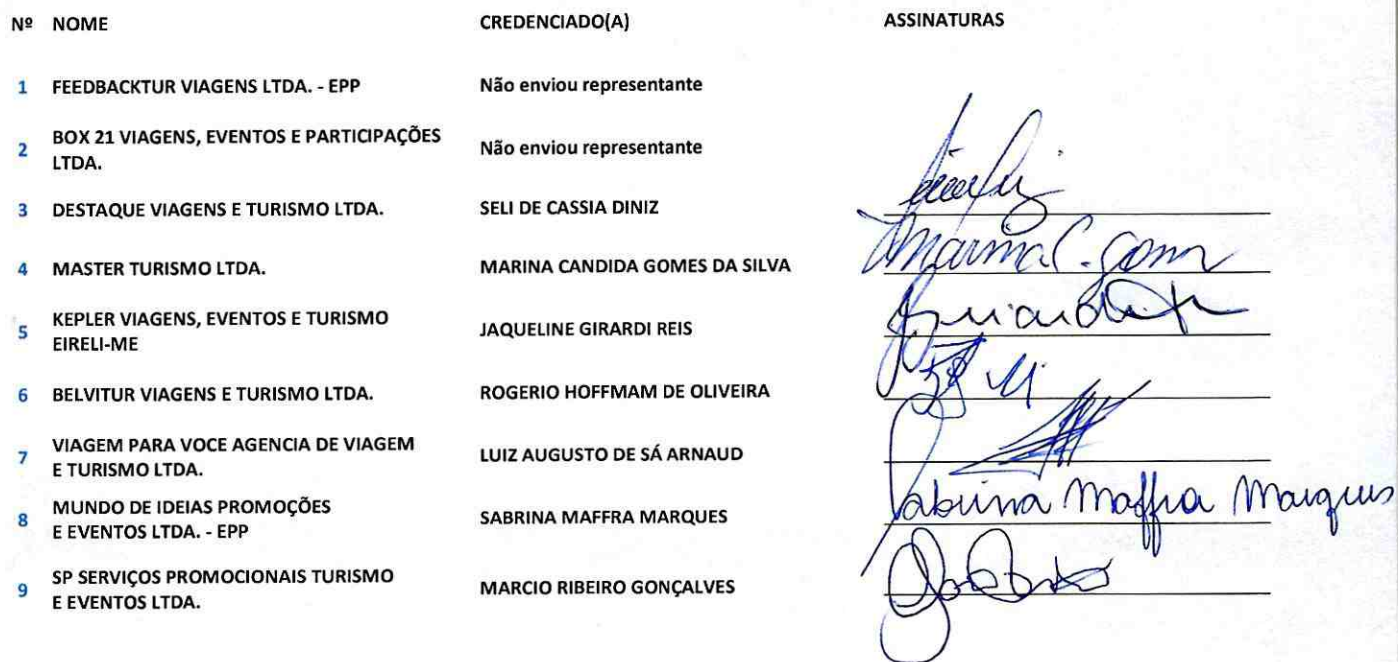 Nº NOME CREDENCIADO(A) ASSINATURAS
1 FEEDBACKTUR VIAGENS LTDA. - EPP Não enviou representante
2 BOX 21 VIAGENS, EVENTOS E PARTICIPAÇÕES
LTDA. Não enviou representante
3 DESTAQUE VIAGENS E TURISMO LTDA. SELI DE CASSIA DINIZ
4 MASTER TURISMO LTDA. MARINA CANDIDA GOMES DA SILVA Marina C. Gom
5 KEPLER VIAGENS, EVENTOS E TURISMO
EIRELI-ME JAQUELINE GIRARDI REIS
6 BELVITUR VIAGENS E TURISMO LTDA. ROGERIO HOFFMAM DE OLIVEIRA
7 VIAGEM PARA VOCE AGENCIA DE VIAGEM
E TURISMO LTDA. LUIZ AUGUSTO DE SÁ ARNAUD
8 MUNDO DE IDEIAS PROMOÇÕES
E EVENTOS LTDA. - EPP SABRINA MAFFRA MARQUES Sabrina Maffra Marques
9 SP SERVIÇOS PROMOCIONAIS TURISMO
E EVENTOS LTDA. MARCIO RIBEIRO GONÇALVES